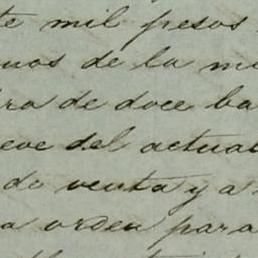 te mil pesos
nos de la m
ra de doce ba
eve del actual
de venta y a
a orden para